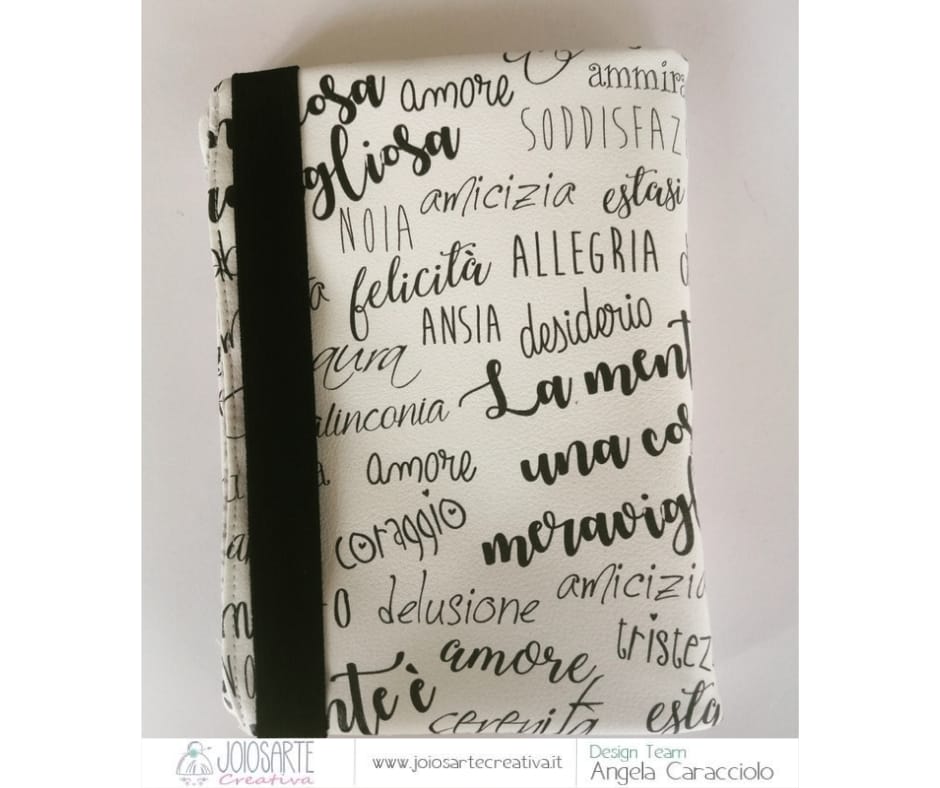 osa amore ammira
gliosa SODDISFAZ
NOIA amicizia estasi
felicità ALLEGRIA
ANSIA desiderio
aura La ment
alinconia
amore una cos
coraggio meravigl
O delusione amicizia
amore tristez
nte è cerenità esta
JOIOSARTE
Creativa
www.joiosartecreativa.it
Design Team
Angela Caracciolo